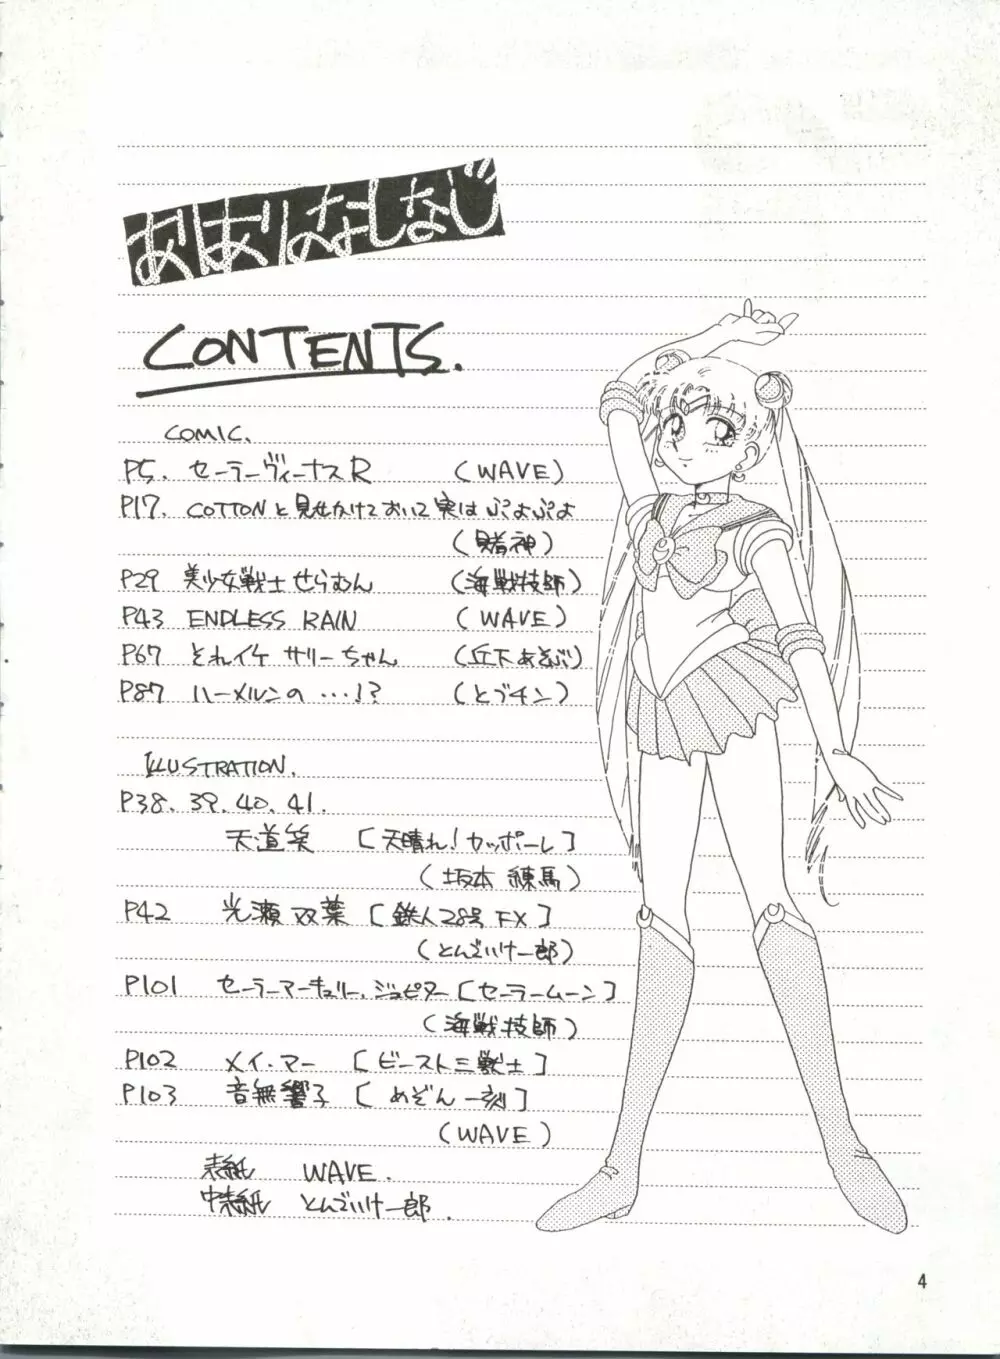 CONTENTS.
COMIC.
P5. セーラーヴィーナスR (WAVE)
P17. COTTONと見せかけておいて実はぷよぷよ
(賭神)
P29 美少女戦士せらむん (海戦技師)
P43 ENDLESS RAIN (WAVE)
P67 それイケ サリーちゃん (丘下あそぶ)
P87 ハーメルンの…!? (とブチン)
ILLUSTRATION.
P38.39.40.41.
天道笑 [天晴れ!カッポーレ]
(坂本 練馬)
P42 光瀬 双葉 [鉄人28号 FX]
(とんでいけ一郎)
P101 セーラーマーキュリー,ジュピター [セーラームーン]
(海戦技師)
P102 メイ・マー [ビースト三獣士]
P103 音無響子 [めぞん一刻]
(WAVE)
表紙 WAVE.
中表紙 とんでいけ一郎.
4